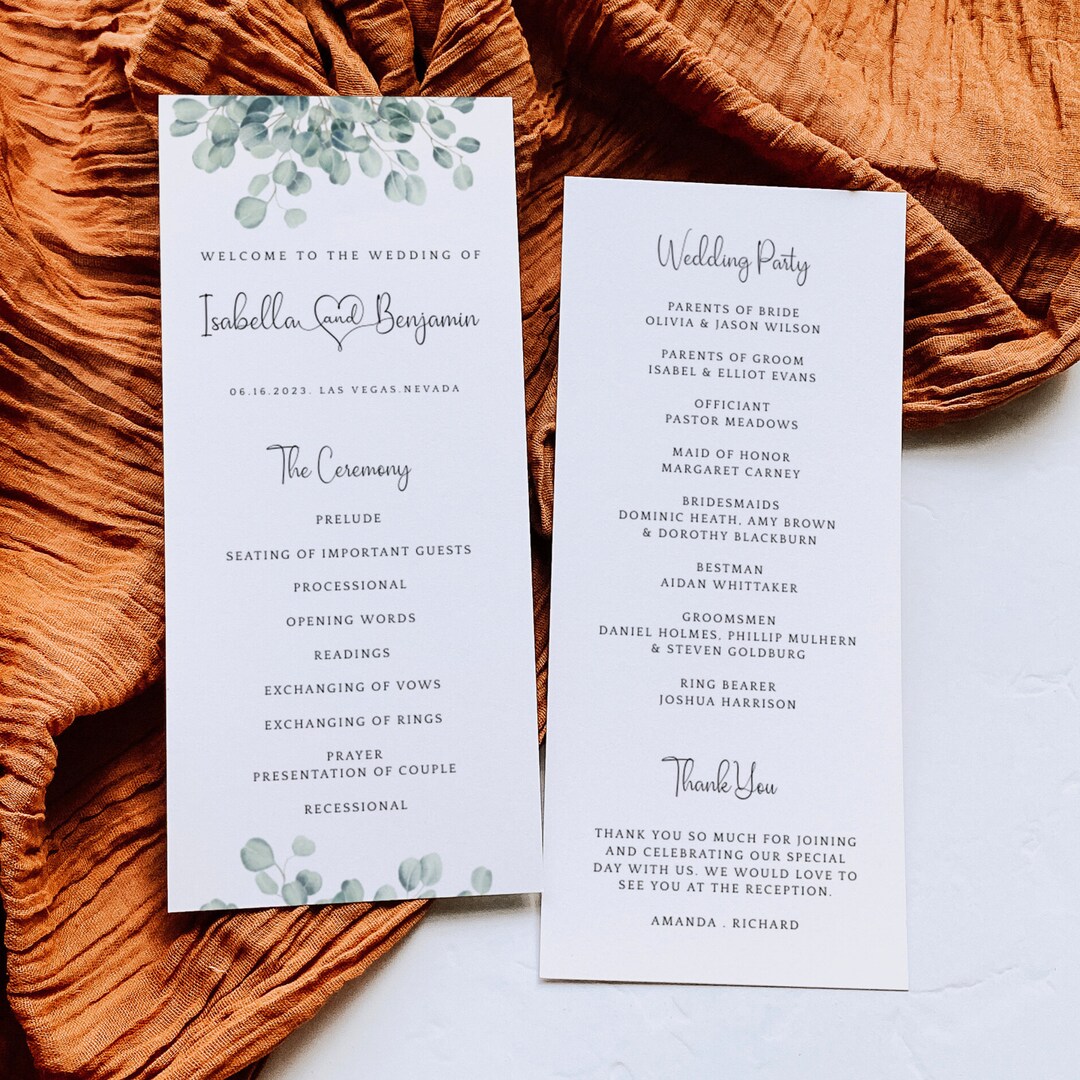 WELCOME TO THE WEDDING OF
Isabella and Benjamin
06.16.2023. LAS VEGAS.NEVADA
The Ceremony
PRELUDE
SEATING OF IMPORTANT GUESTS
PROCESSIONAL
OPENING WORDS
READINGS
EXCHANGING OF VOWS
EXCHANGING OF RINGS
PRAYER
PRESENTATION OF COUPLE
RECESSIONAL
Wedding Party
PARENTS OF BRIDE
OLIVIA & JASON WILSON
PARENTS OF GROOM
ISABEL & ELLIOT EVANS
OFFICIANT
PASTOR MEADOWS
MAID OF HONOR
MARGARET CARNEY
BRIDESMAIDS
DOMINIC HEATH, AMY BROWN
& DOROTHY BLACKBURN
BESTMAN
AIDAN WHITTAKER
GROOMSMEN
DANIEL HOLMES, PHILLIP MULHERN
& STEVEN GOLDBURG
RING BEARER
JOSHUA HARRISON
Thank You
THANK YOU SO MUCH FOR JOINING
AND CELEBRATING OUR SPECIAL
DAY WITH US. WE WOULD LOVE TO
SEE YOU AT THE RECEPTION.
AMANDA . RICHARD